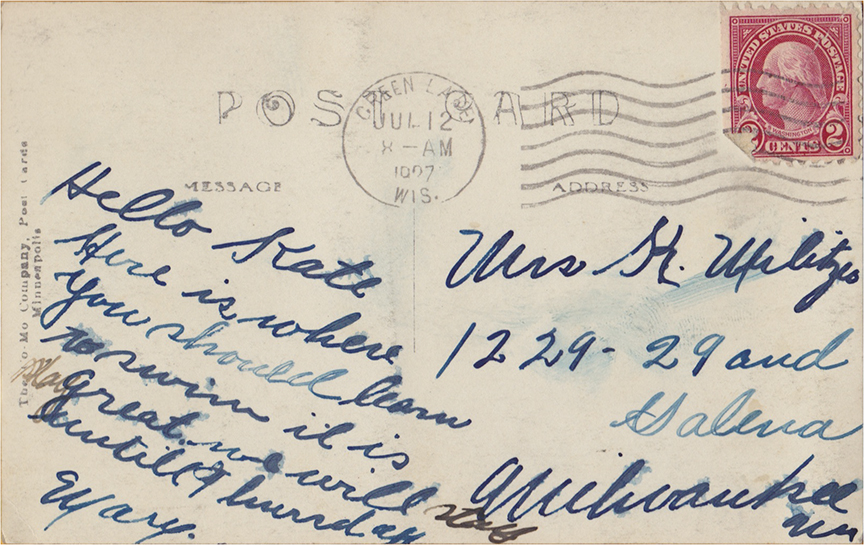 UNITED STATES POSTAGE
WASHINGTON
2 CENTS 2
POST CARD
GREEN LAKE
JUL 12
8-AM
1927
WIS.
MESSAGE
ADDRESS
Company, Post Cards
Minneapolis
Hello Kate
Here is where
you should learn
to swim it is
great. we will stay
untill Thursday
Mary.
Mrs K. Militzer
1229-29 and
Galena
Milwaukee